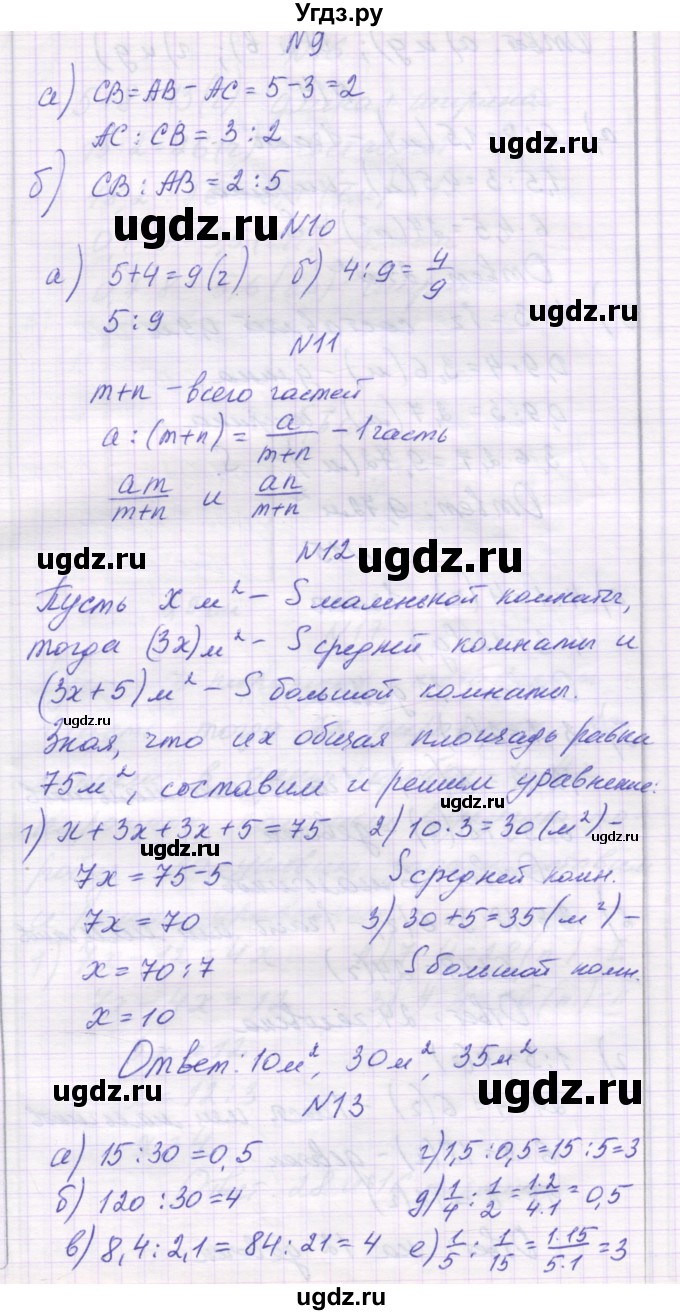 Угдз.ру
N9
а) CB = AB − AC = 5 − 3 = 2
AC : CB = 3 : 2
ugdz.ru
б) CB : AB = 2 : 5
ugdz.ru
N10
а) 5 + 4 = 9 (г) б) 4 : 9 = 4/9
ugdz.ru
5 : 9
N11
m+n − всего частей
a : (m+n) = a/(m+n) − 1 часть
am/(m+n) и an/(m+n)
N12
ugdz.ru ugdz.ru
Пусть x м² − S маленькой комнаты,
тогда (3x) м² − S средней комнаты и
(3x + 5) м² − S большой комнаты.
ugdz.ru
Зная, что их общая площадь равна
75 м², составим и решим уравнение:
ugdz.ru
1) x + 3x + 3x + 5 = 75 2) 10 · 3 = 30 (м²) −
ugdz.ru ugdz.ru
7x = 75 - 5 S средней комн.
7x = 70 3) 30 + 5 = 35 (м²) −
ugdz.ru
x = 70 : 7 S большой комн.
x = 10
Ответ: 10 м², 30 м², 35 м²
ugdz.ru ugdz.ru
N13
а) 15 : 30 = 0,5 г) 1,5 : 0,5 = 15 : 5 = 3
б) 120 : 30 = 4 д) 1/4 : 1/2 = 1·2/4·1 = 0,5
ugdz.ru
в) 8,4 : 2,1 = 84 : 21 = 4 е) 1/5 : 1/15 = 1·15/5·1 = 3
ugdz.ru